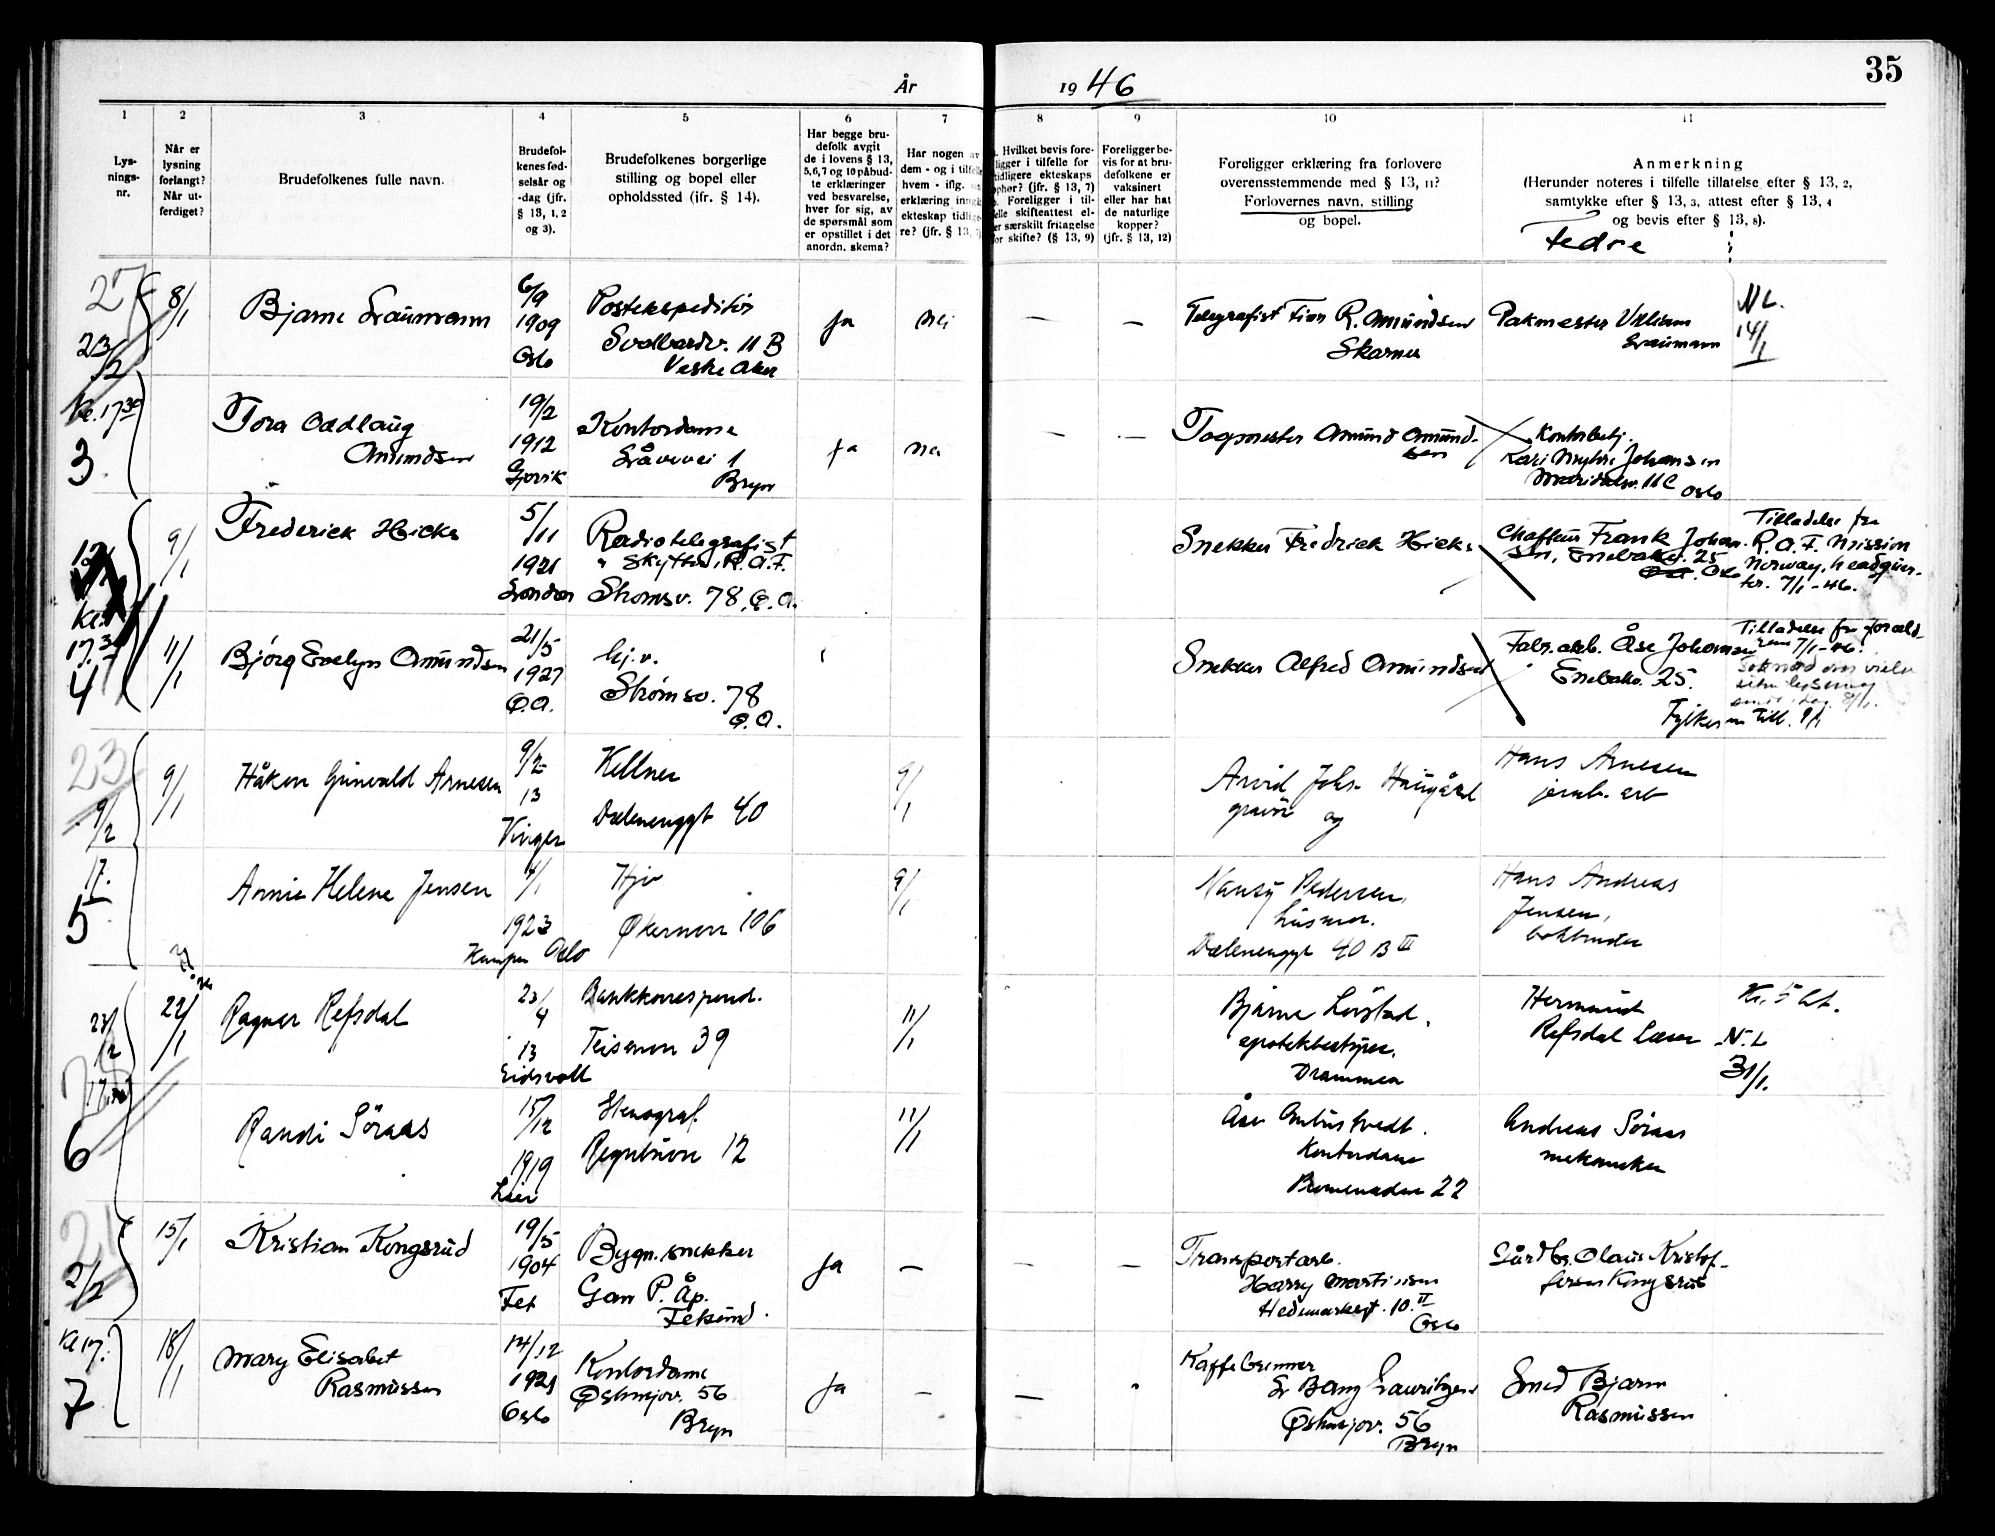 35
År
1946
1
2
3
4
5
6
7
8
9
10
11
Lys-
nings-
nr.
Når er
lysning
forlangt?
Når ut-
ferdiget?
Brudefolkenes fulle navn.
Brudefol-
kenes fød-
selsår og
-dag (jfr.
§ 13, 1, 2
og 3).
Brudefolkenes borgerlige
stilling og bopel eller
opholdssted (jfr. § 14).
Har begge bru-
defolk avgit
de i lovens § 13,
5, 6, 7 og 10 påbud-
te erklæringer
ved besvarelse,
hver for sig, av
de spørsmål som
er opstillet i det
anordn. skema?
Har nogen av
dem - og i tilfelle
hvem - iflg.
erklæring
ekteskap tidlig-
re? (jfr. § 13,
Hvilket bevis fore-
ligger i tilfelle for
tidligere ekteskaps
ophør? (jfr. § 13, 7)
Foreligger i til-
felle skifteattest el-
ler særskilt fritagelse
for skifte? (§ 13, 9)
Foreligger be-
vis for at bru-
defolkene er
vaksinert
eller har hat
de naturlige
kopper?
(jfr. § 13, 12)
Foreligger erklæring fra forlovere
overensstemmende med § 13, 11?
Forlovernes navn, stilling
og bopel.
Anmerkning
(Herunder noteres i tilfelle tillatelse efter § 13, 2,
samtykke efter § 13, 3, attest efter § 13, 4
og bevis efter § 13, 8).
Fedre
27
23/2
kl. 17 30
3
8/1
Bjarne
6/9
1909
Oslo
Postekspeditør
Svalbardv. 11 B
Vestre Aker
ja
nei
—
—
Telegrafist Finn R. Amundsen
Skarnes
Pakmester
N.L.
14/1
Tora Oddlaug
Amundsen
19/2
1912
Gjøvik
Kontordame
1
Bryn
ja
nei
—
—
Togmester Amund Amund-
sen
Kontorbetj.
Kari Myhre Johansen
Maridalsv. 11 C Oslo
kl.
17.30
4
9/1
Frederick Hicks
5/11
1921
London
Radiotelegrafist
" Skytter, R.A.F.
Strømsv. 78, Ø.A.
Snekker Fredrick Hicks
Chaffeur Frank Johan-
sen, Enebakv. 25
Oslo
Tilladelse fra
R.A.F. Mission
Norway, headquar-
ter. 7/1-46.
11/1
Bjørg Evelyn Amundsen
21/5
1927
Ø.A.
hj.v.
Strømsv. 78
Ø.A.
Snekker Alfred Amundsen
Fabr.arb. Åse Johansen
Enebakv. 25.
Tilladelse fra foreld-
rene 7/1-46.
Fylkesm till. 9/1
23
9/2
17.
5
9/1
Håkon Gunvald Arnesen
9/2
13
Vinger
Kellner
Dælenenggt 40
9/1
Arvid Johs. Haugård
gravør og
Hans Arnesen
jernb. arb
Annie Helene Jensen
4/1
1923
Kampen Oslo
Hjv
Økernvn 106
9/1
Nancy Pedersen,
husmor.
Dælenenggt 40 B III
Hans Andreas
Jensen,
bokbinder
23/2
6
22/1
Ragnar Refsdal
23/4
13
Eidsvoll
Bankkorrespond.
Teisenvn 39
11/1
Bjarne Lovstad,
apotekbestyrer,
Drammen
Hermund
Refsdal Lærer
Kr. 5 bt.
N.L
31/1.
Randi Söraas
15/12
1919
Lier
Stenograf.
12
11/1
Åse
Kontordame
Promenaden 22
Andreas Söraas
mekaniker
21
2/2
15/1
Kristian Kongsrud
19/5
1904
Fet
Bygn.snekker
Gan P. Åp.
Fetsund.
ja
—
—
—
Transportarb.
Harry Martinsen
Hedemarksgt. 10. II
Oslo
Gårdbr. Olaus Kristof-
fersen Kongsrud
kl 17.
7
18/1
Mary Elisabet
Rasmussen
14/12
1921
Oslo
Kontordame
Østensjøv. 56
Bryn
ja
—
—
Kaffebrenner
Bang Lauritzen
Østensjøv. 56
Bryn
Smed Bjarne
Rasmussen